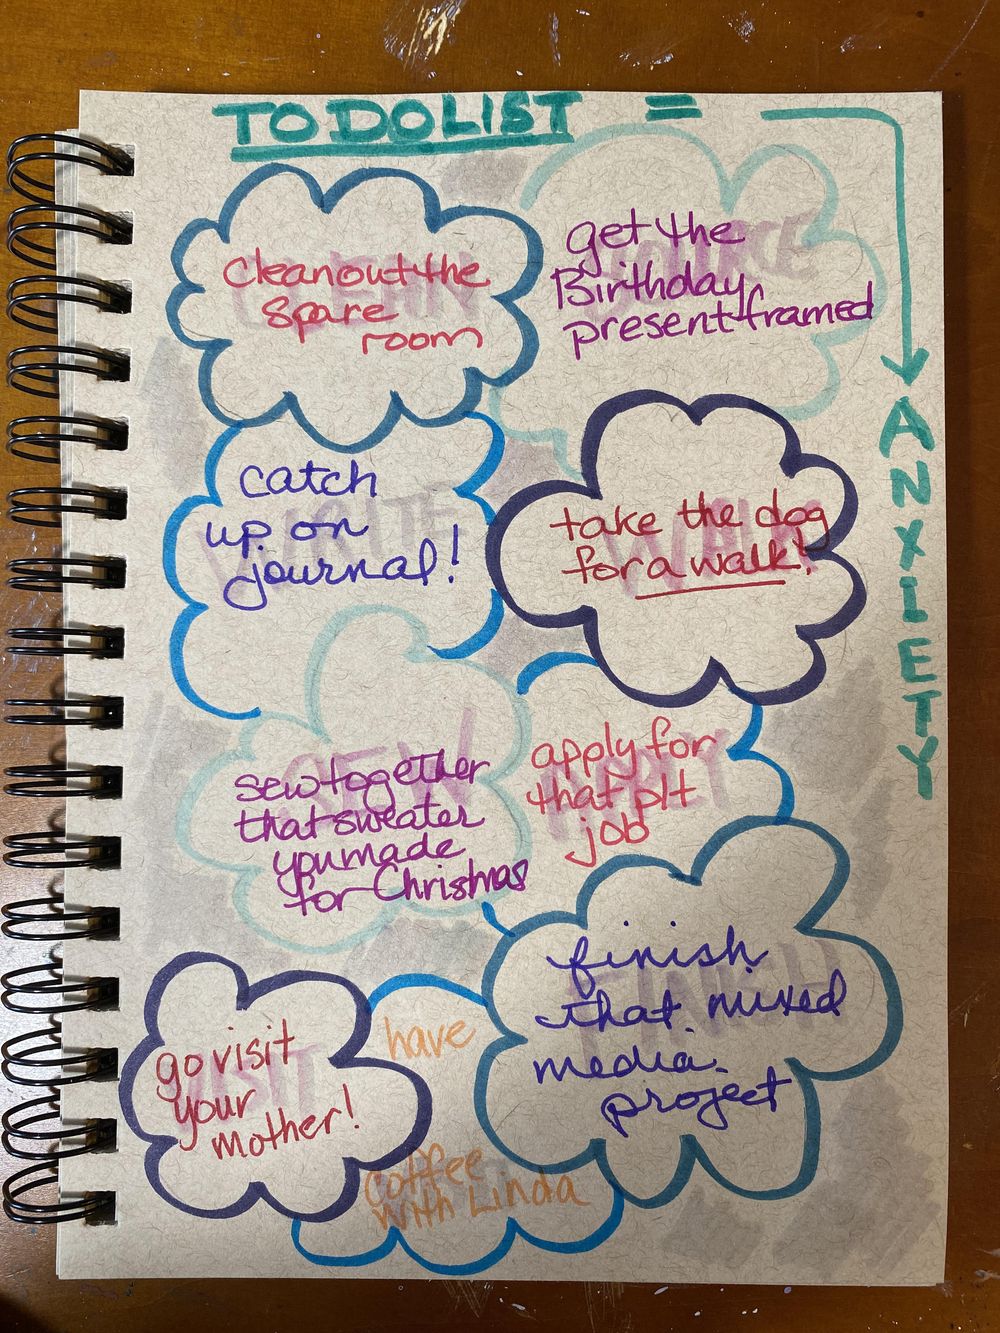 TO DO LIST =
ANXIETY
clean out the
spare
room
get the
Birthday
present framed
catch
up on
journal!
take the dog
for a walk!
sew together
that sweater
you made
for Christmas
apply for
that p/t
job
finish
that mixed
media
project
go visit
your
mother!
have
coffee
with Linda
CLEAN
WRITE
WALK
SEW
APPLY
FINISH
VISIT